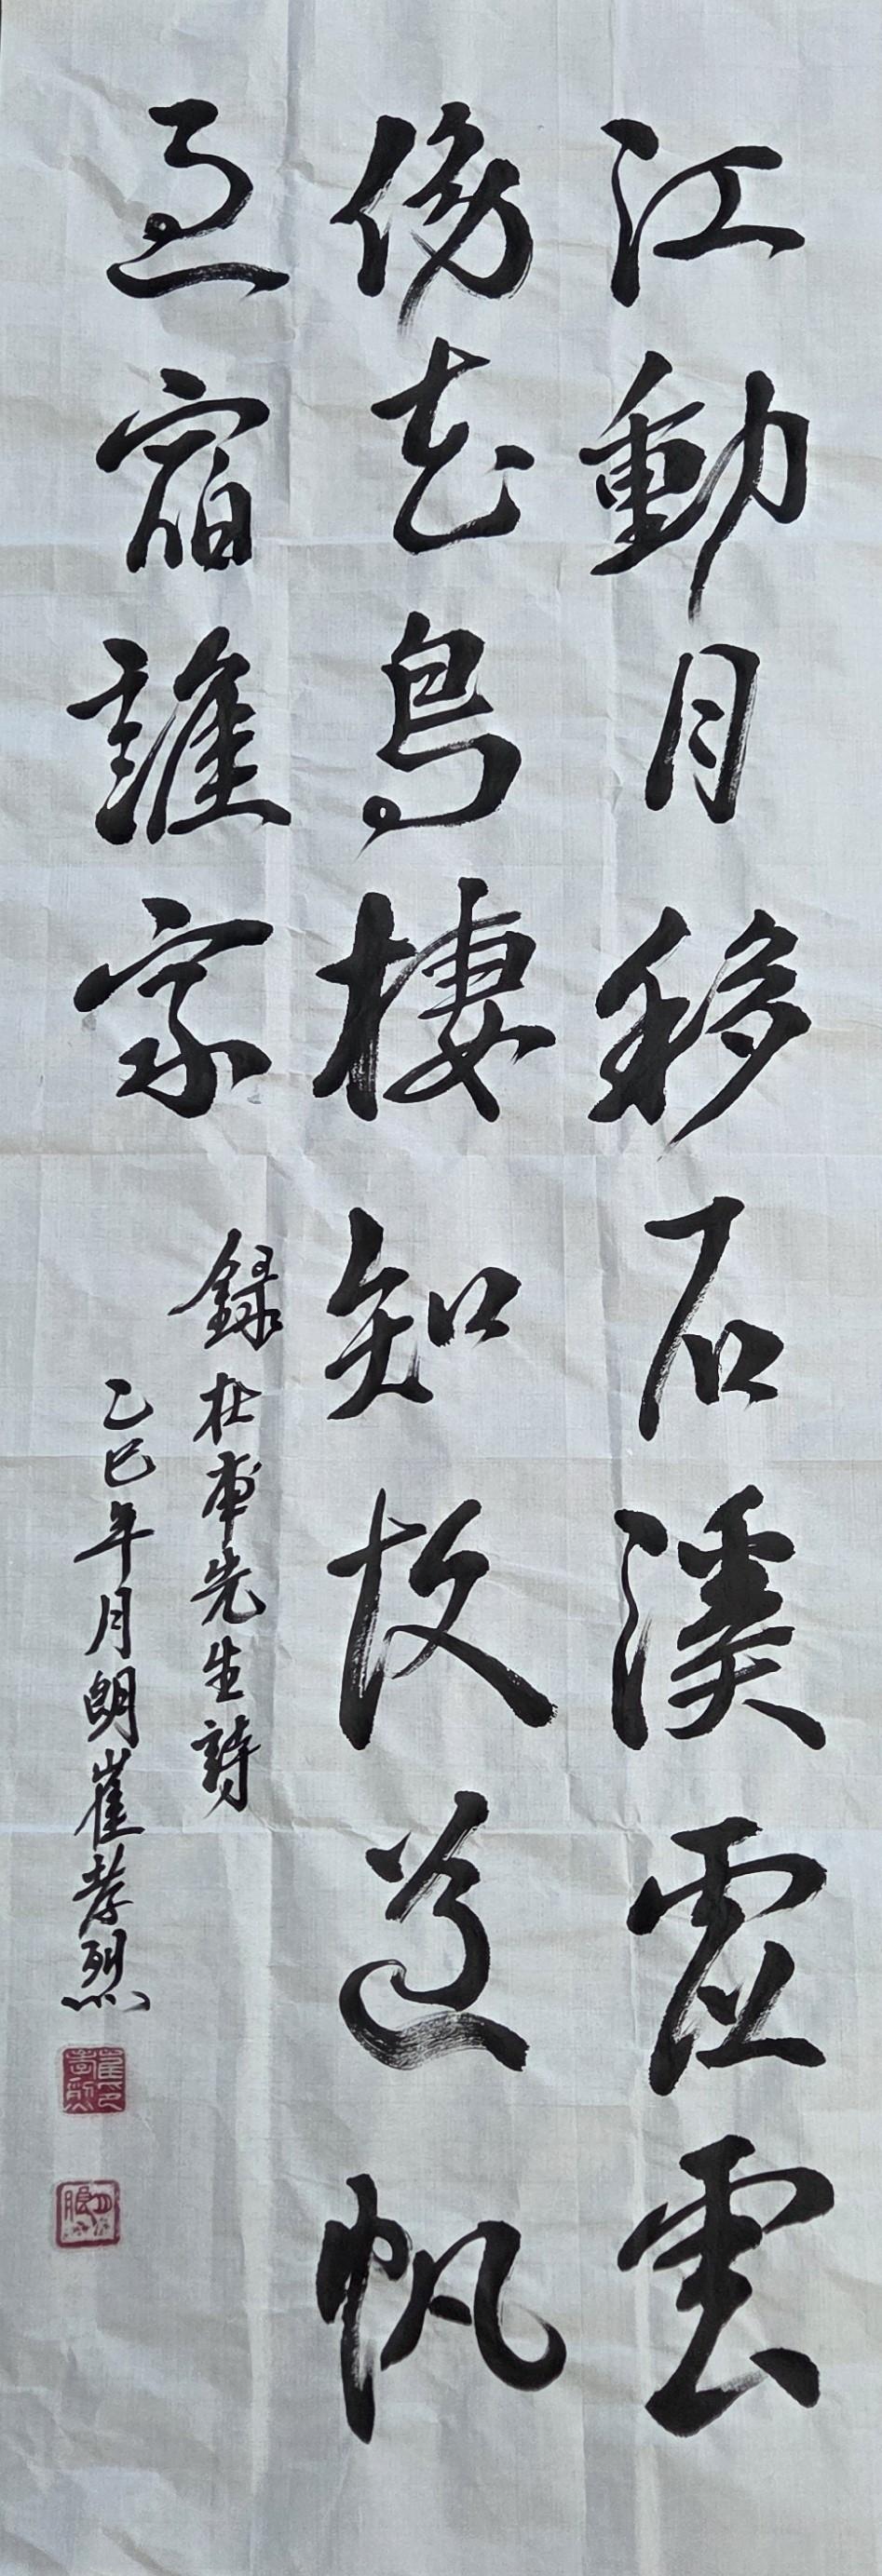 江動月移石溪虛雲
傍花鳥棲知故道帆
過宿誰家
錄杜甫先生詩
乙巳年月朗崔孝烈
崔孝烈印